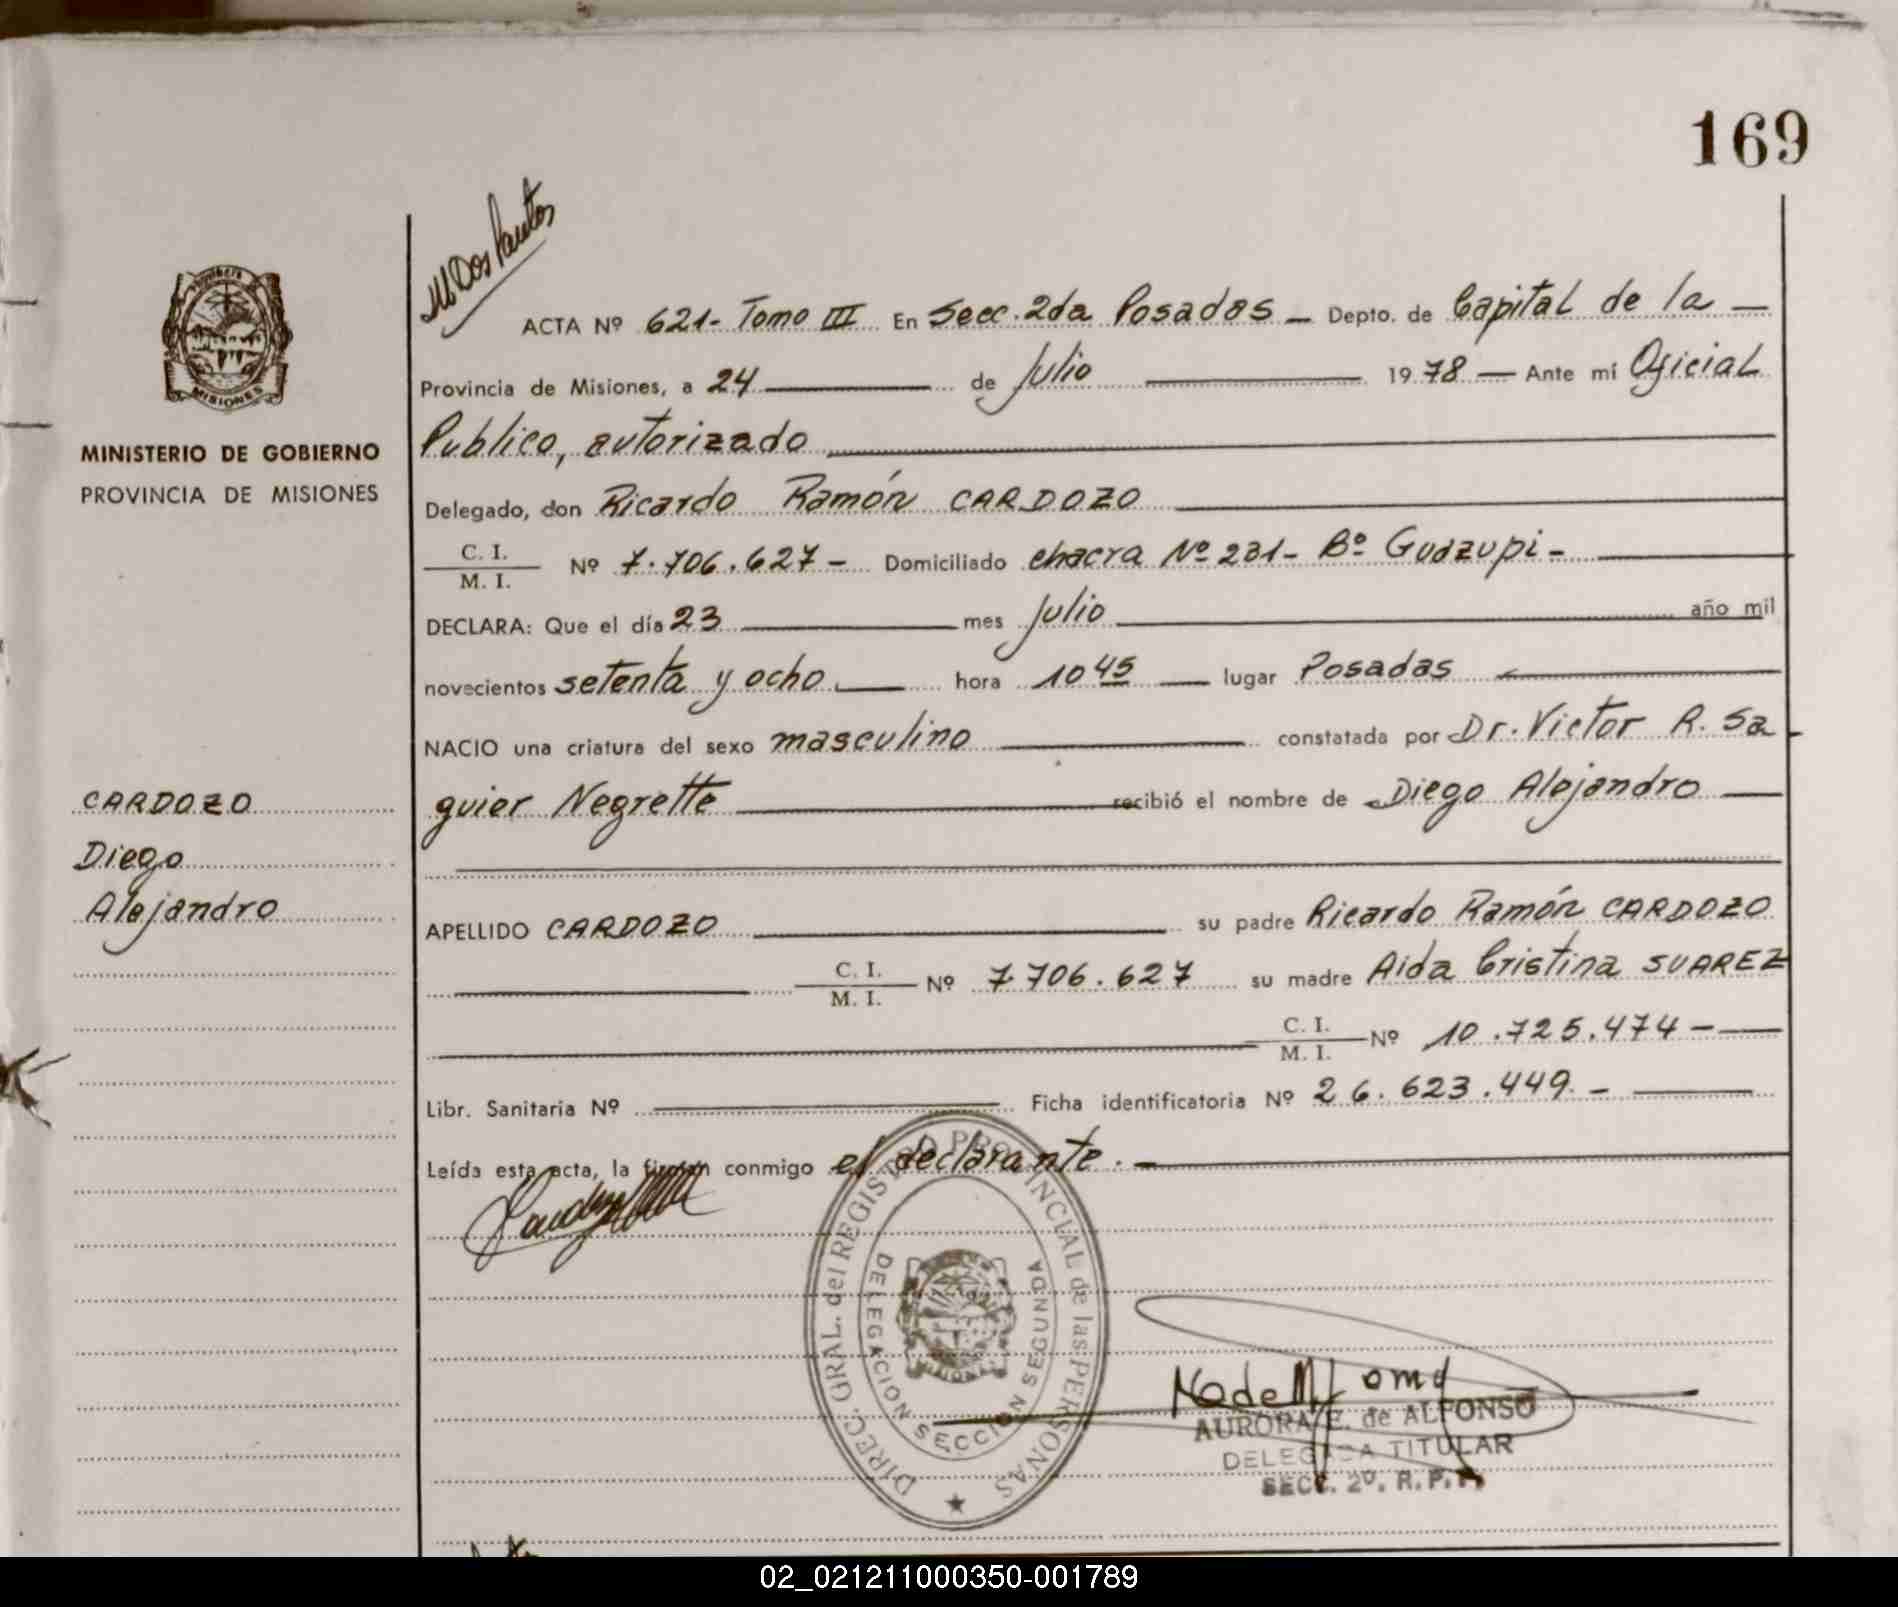 169
M Dos Santos
ACTA Nº 621- Tomo III En Secc. 2da Posadas - Depto. de Capital de la -
Provincia de Misiones, a 24 de Julio 1978 - Ante mí Oficial
Publico, autorizado
MINISTERIO DE GOBIERNO
PROVINCIA DE MISIONES
Delegado, don Ricardo Ramón CARDOZO
C. I.
M. I. Nº 7.706.627- Domiciliado chacra Nº 231- Bº Guazupi-
DECLARA: Que el día 23 mes Julio año mil
novecientos setenta y ocho hora 10 45 lugar Posadas
NACIO una criatura del sexo masculino constatada por Dr. Victor R. Sa-
guier Negrette recibió el nombre de Diego Alejandro
CARDOZO
Diego
Alejandro
APELLIDO CARDOZO su padre Ricardo Ramón CARDOZO
C. I.
M. I. Nº 7706.627 su madre Aida Cristina SUAREZ
C. I.
M. I. Nº 10.725.474-
Libr. Sanitaria Nº Ficha identificatoria Nº 26.623.449.-
Leída esta acta, la firman conmigo el declarante.-
DIREC. GRAL. del REGISTRO PROVINCIAL de las PERSONAS
DELEGACION SECCION SEGUNDA
MISIONES
AURORA E. de ALFONSO
DELEGADA TITULAR
SECC. 2º. R.P.P.
02_021211000350-001789